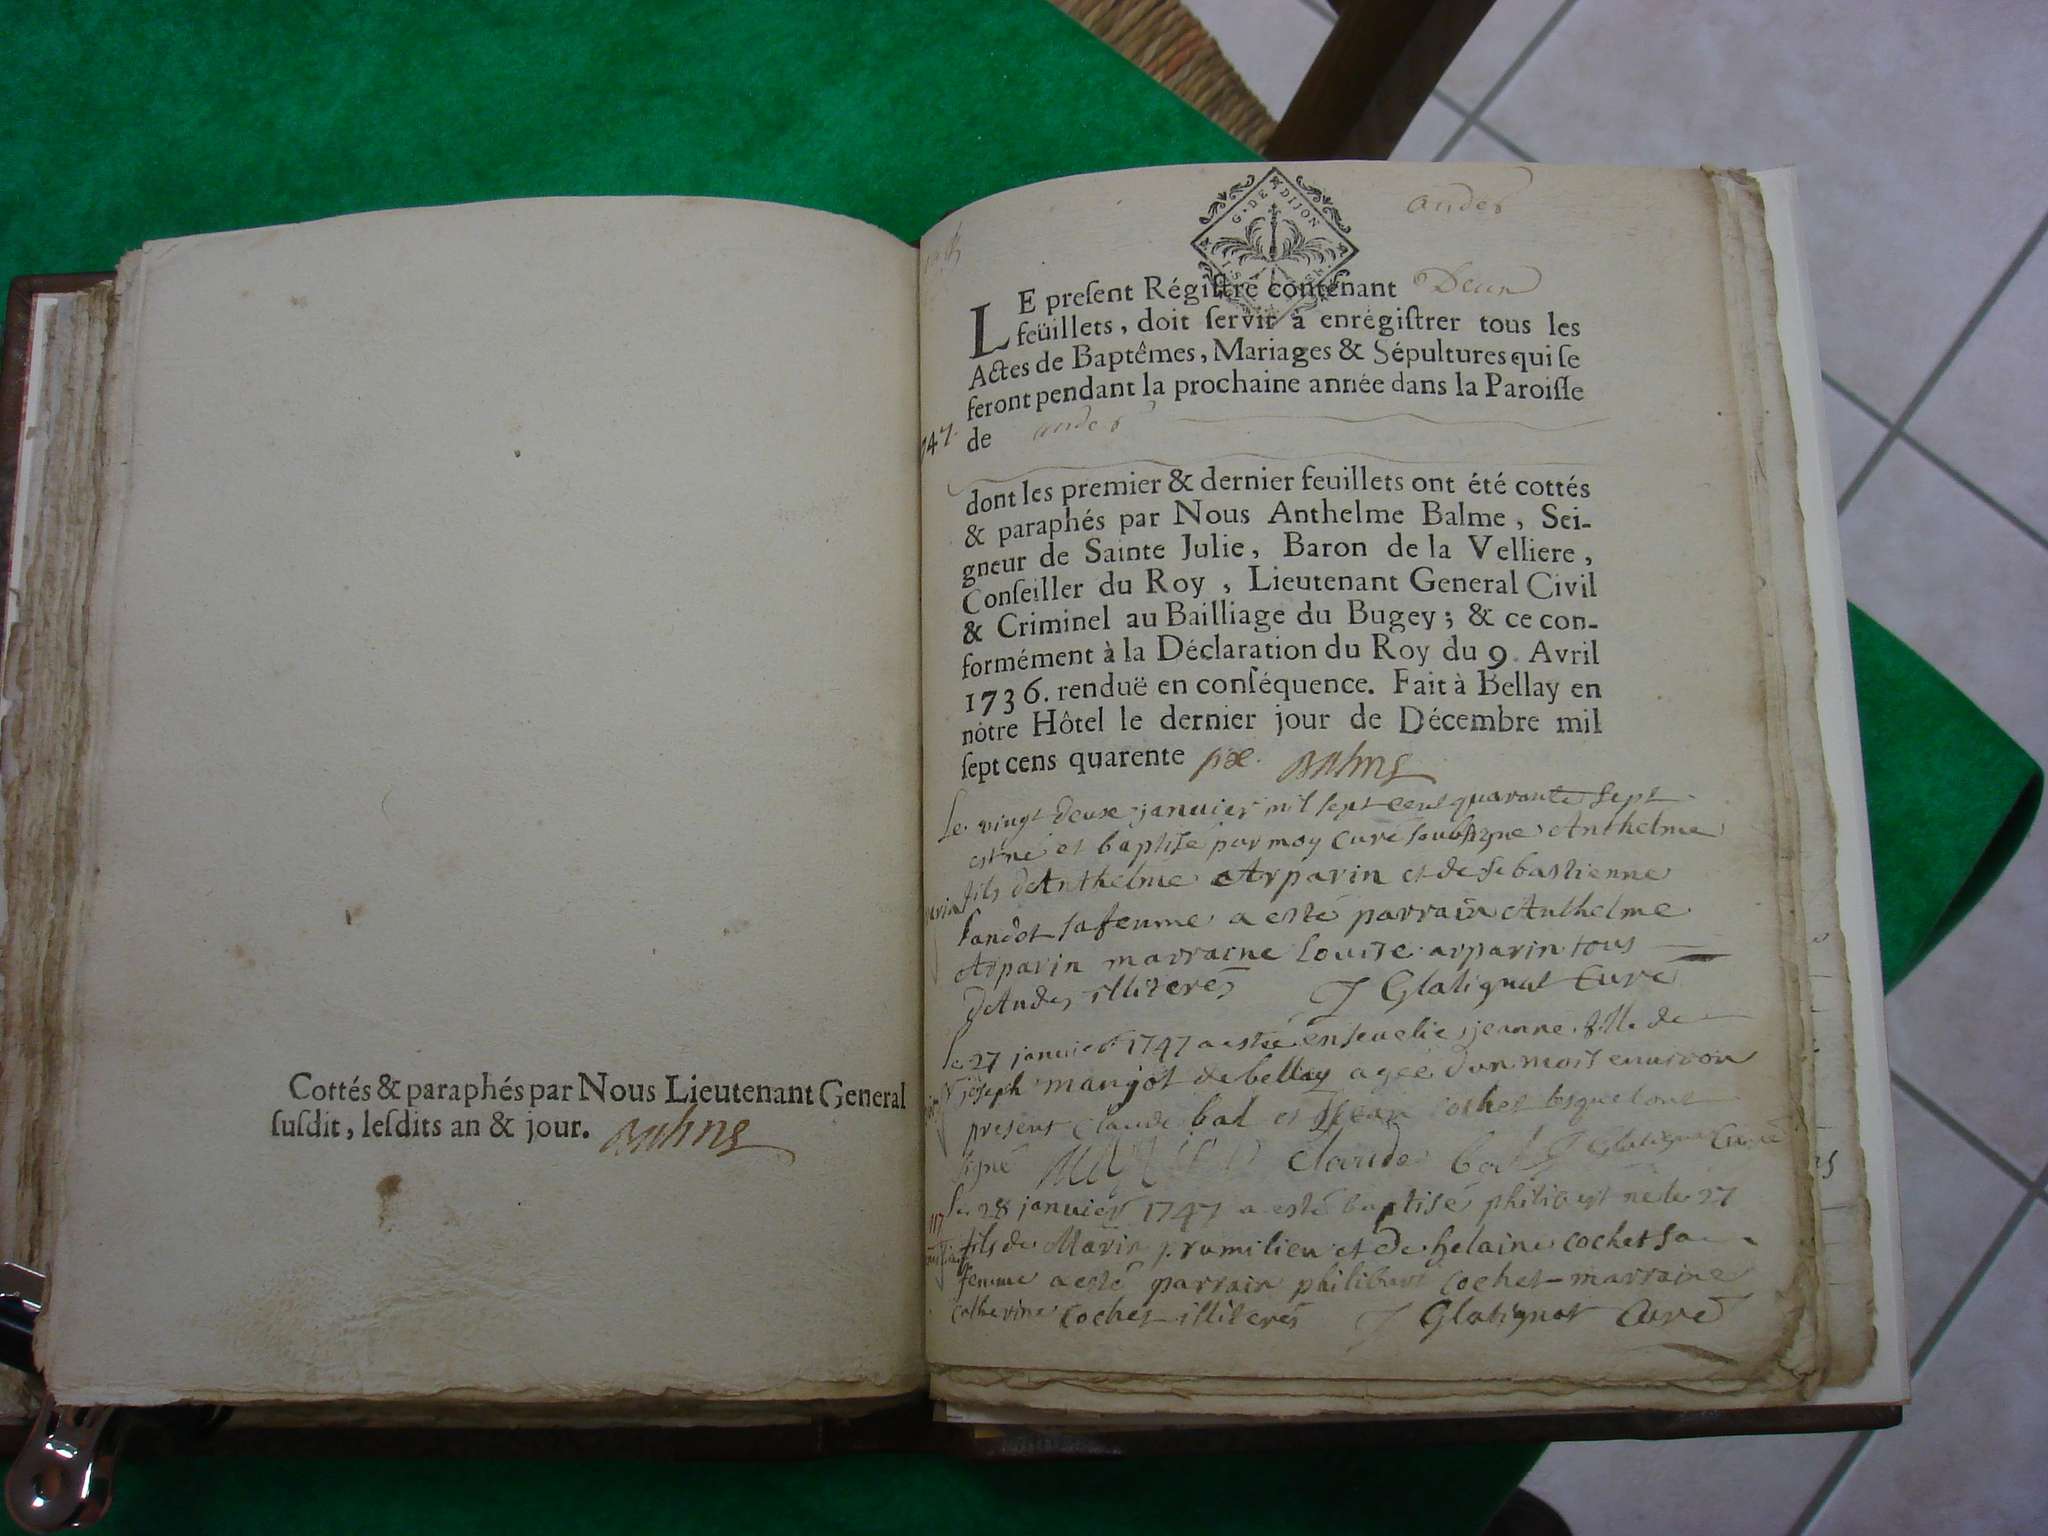 Cottés & paraphés par Nous Lieutenant General
ſuſdit, leſdits an & jour.
andes
G. DE DIJON
LE preſent Régiſtre contenant Deux
feüillets, doit ſervir à enrégiſtrer tous les
Actes de Baptêmes, Mariages & Sépultures qui ſe
feront pendant la prochaine année dans la Paroiſſe
de andes
dont les premier & dernier feuillets ont été cottés
& paraphés par Nous Anthelme Balme, Sei-
gneur de Sainte Julie, Baron de la Velliere,
Conſeiller du Roy, Lieutenant General Civil
& Criminel au Bailliage du Bugey; & ce con-
formément à la Déclaration du Roy du 9. Avril
1736. renduë en conſéquence. Fait à Bellay en
nôtre Hôtel le dernier jour de Décembre mil
ſept cens quarente six.
Le vingt deuxe janvier mil sept cent quarante sept
est né et baptisé par moy curé soubsigne Anthelme
fils d'Anthelme Arparin et de sebastienne
sa femme a esté parrain Anthelme
Arparin marraine Louise arparin tous
d'Andes illiterés J Glatignat Curé
le 27 janvier 1747 a estée ensevelie jeanne fille de
joseph manjot de bellay agée d'un mois environ
presens claude bal et jean cochet lesquels ont
signé claude bal J Glatignat Curé
Le 28 janvier 1747 a esté baptisé philibert né le 27
fils de Marin prumilieu et de helaine cochet sa
femme a esté parrain philibert cochet marraine
catherine cochet illiterés J Glatignat Curé